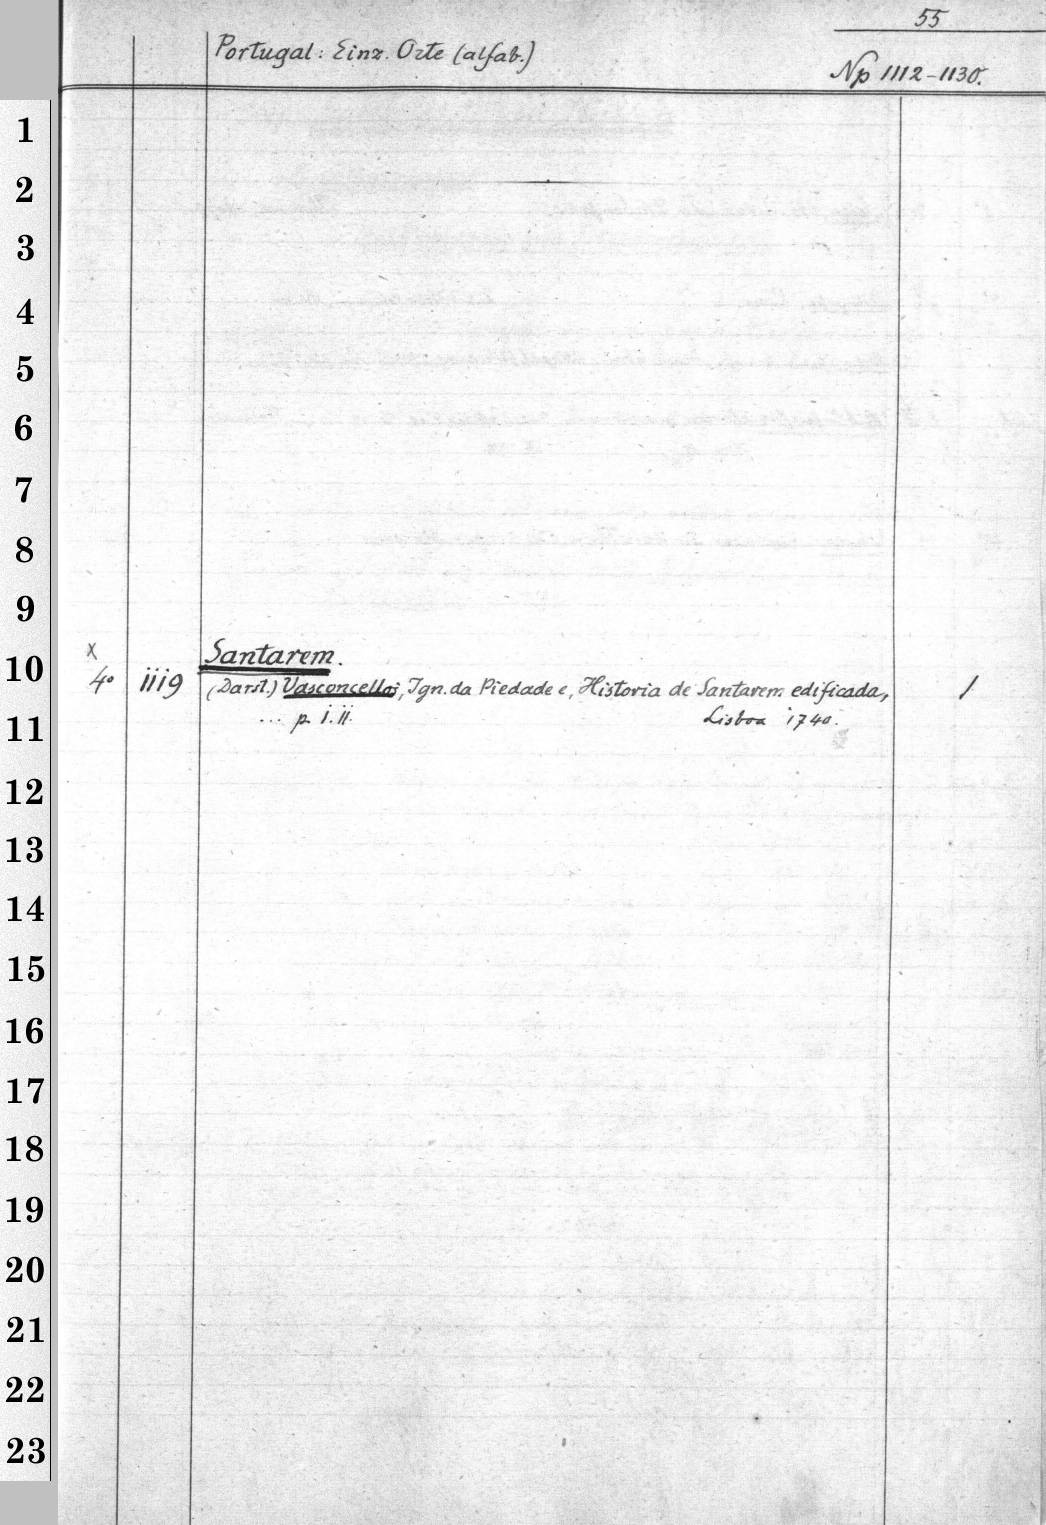 55
Portugal: Einz. Orte (alfab.)
Np 1112-1130.
1
2
3
4
5
6
7
8
9
x
Santarem.
10
4° 1119 (Darst.) Vasconcellos, Ign. da Piedade e, Historia de Santarem edificada, 1
... p. I. II. Lisboa 1740.
11
12
13
14
15
16
17
18
19
20
21
22
23